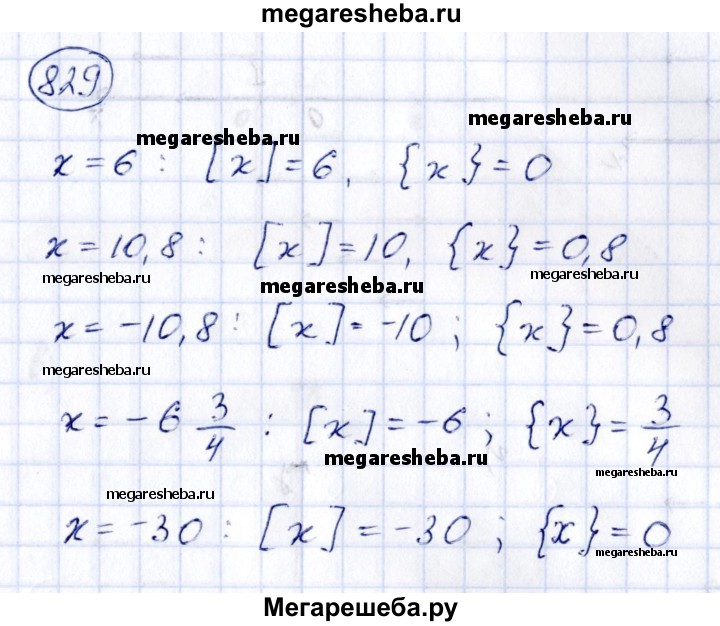 megaresheba.ru
829
megaresheba.ru
megaresheba.ru
x = 6 : [x] = 6, {x} = 0
x = 10,8 : [x] = 10, {x} = 0,8
megaresheba.ru
megaresheba.ru
megaresheba.ru
x = -10,8 : [x] = -10 ; {x} = 0,8
megaresheba.ru
x = -6 3/4 : [x] = -6 ; {x} = 3/4
megaresheba.ru
megaresheba.ru
megaresheba.ru
x = -30 : [x] = -30 ; {x} = 0
megaresheba.ru
Мегарешеба.ру